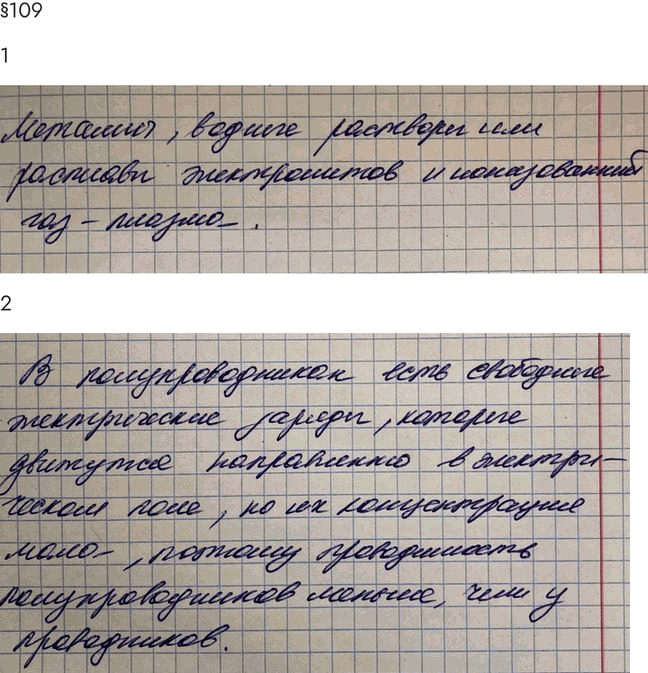 §109
1
Металлы, водные растворы или
расплавы электролитов и ионизованный
газ – плазма.
2
В полупроводниках есть свободные
электрические заряды, которые
движутся направленно в электри-
ческом поле, но их концентрация
мала, поэтому проводимость
полупроводников меньше, чем у
проводников.